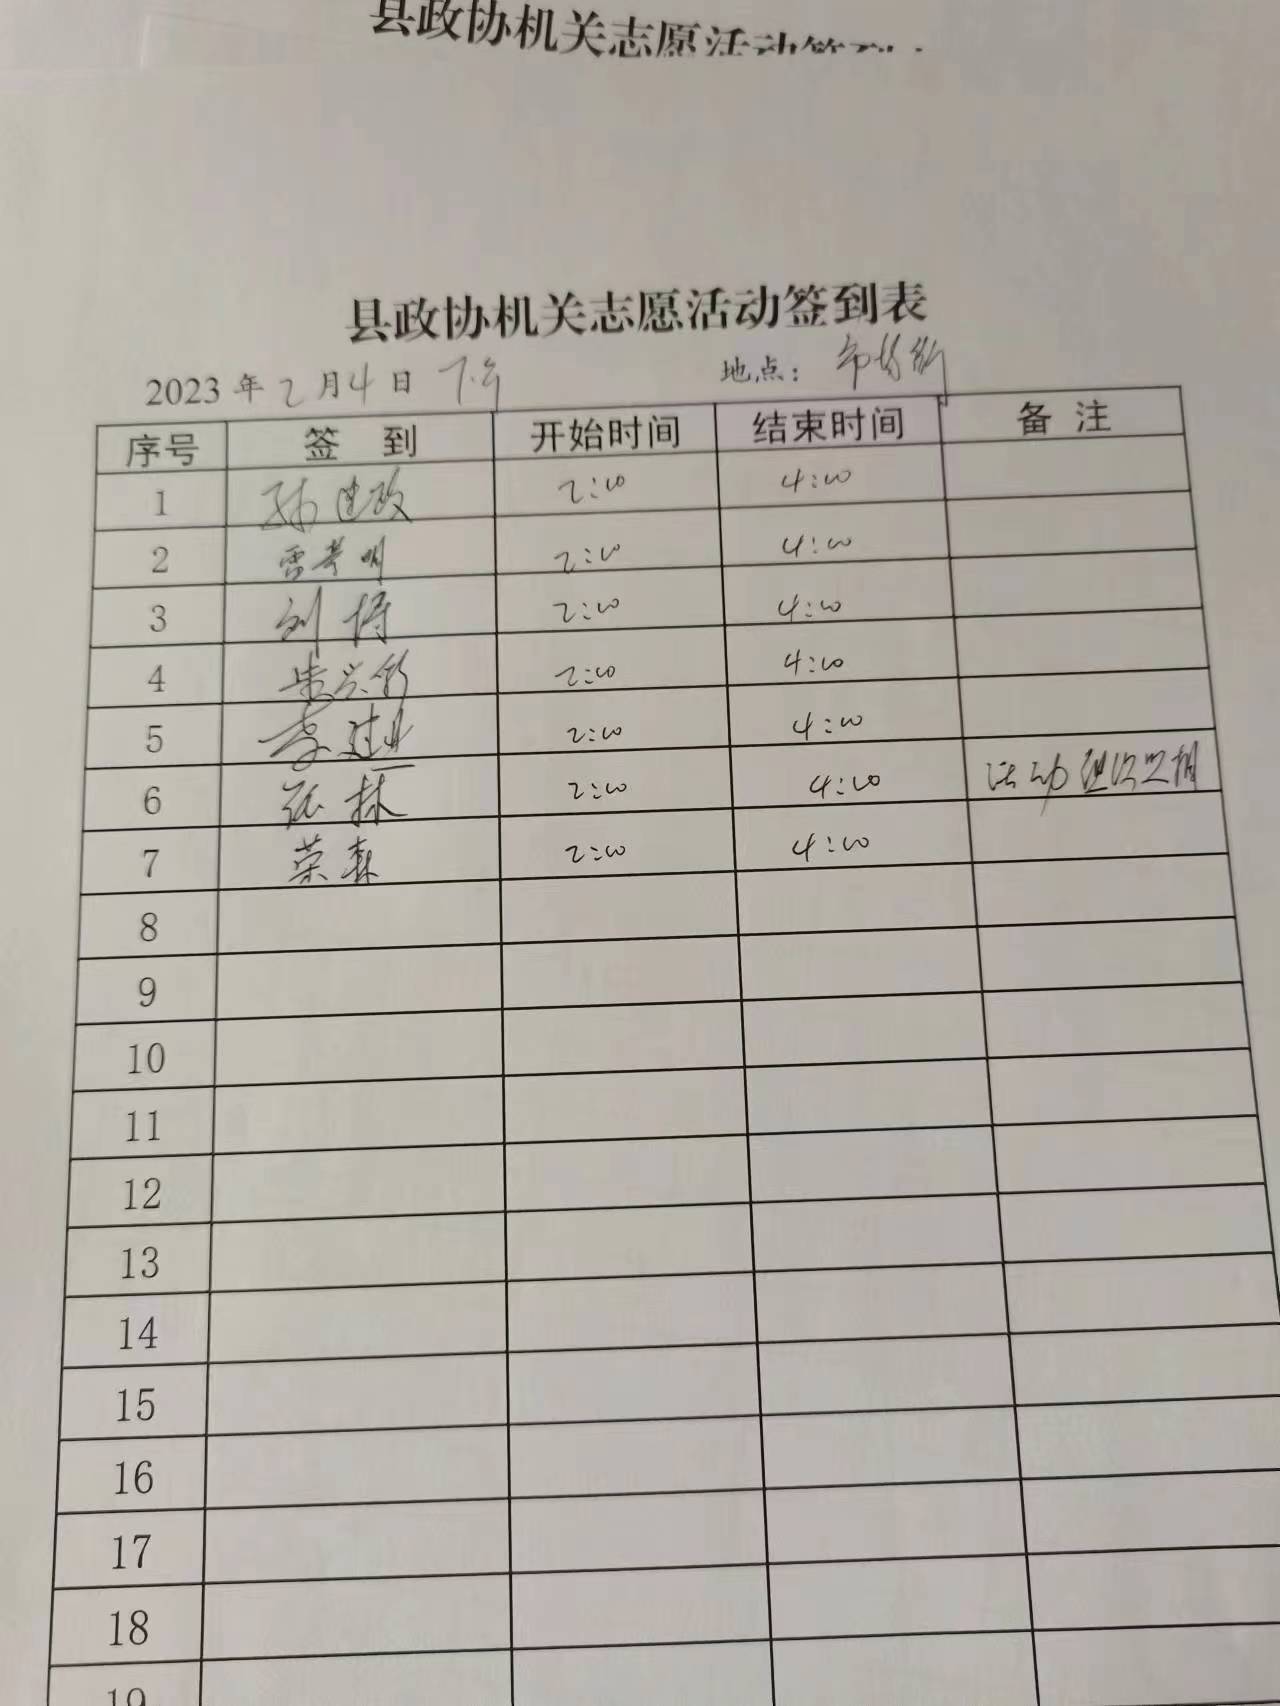 县政协机关志愿活动签到
县政协机关志愿活动签到表
2023年2月4日 下午 地点：
序号 签 到 开始时间 结束时间 备 注
1 孙建政 2:00 4:00
2 雷 明 2:00 4:00
3 刘博 2:00 4:00
4 朱兴 2:00 4:00
5 李建业 2:00 4:00
6 张林 2:00 4:00 活动
7 荣森 2:00 4:00
8
9
10
11
12
13
14
15
16
17
18
19